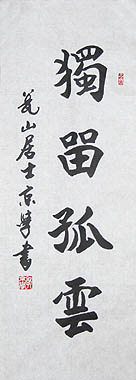 獨畱孤雲
山居士京㝊書